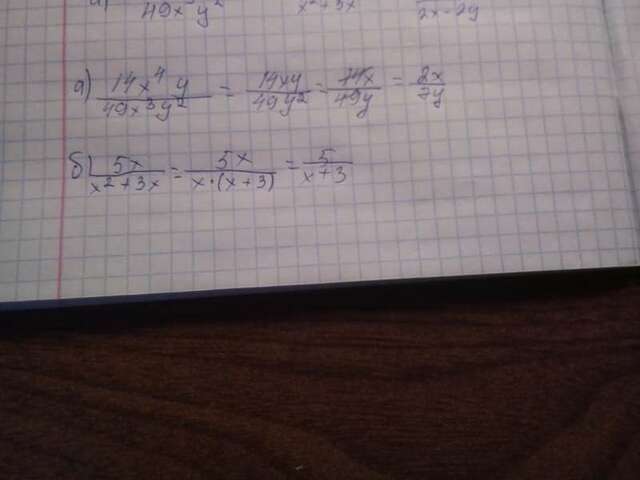 49x³y² x²+3x 2x-2y
а) 14x⁴y/49x³y² = 14xy/49y² = 14x/49y = 2x/7y
б) 5x/x²+3x = 5x/x·(x+3) = 5/x+3